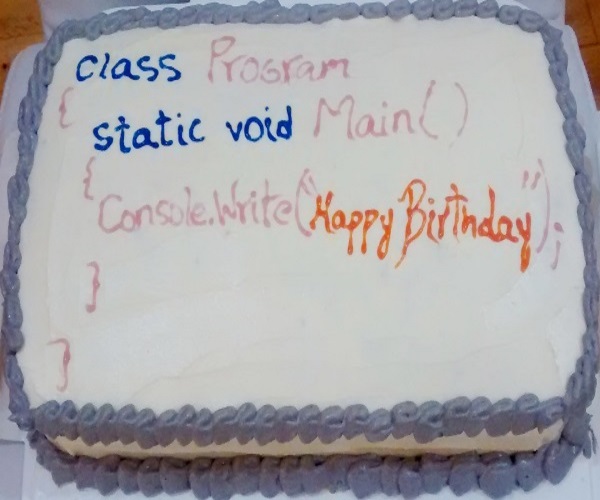 class Program
{
static void Main()
{
Console.Write("Happy Birthday");
}
}